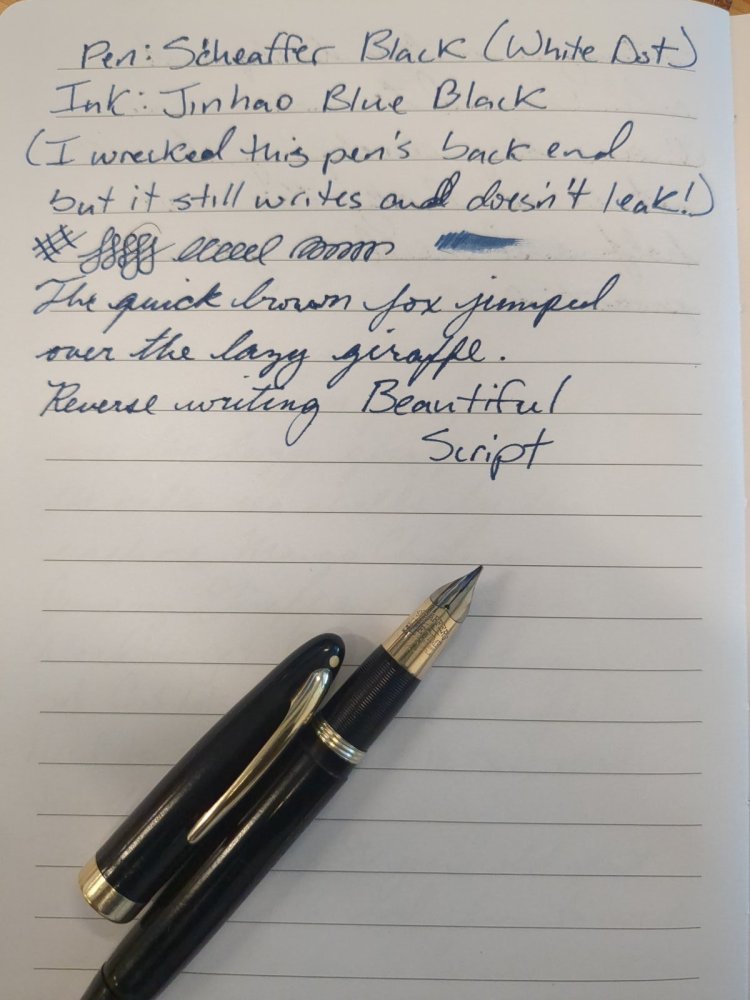 Pen: Scheaffer Black (White Dot)
Ink: Jinhao Blue Black
(I wrecked this pen's back end
but it still writes and doesn't leak!)
The quick brown fox jumped
over the lazy giraffe.
Reverse writing Beautiful
Script